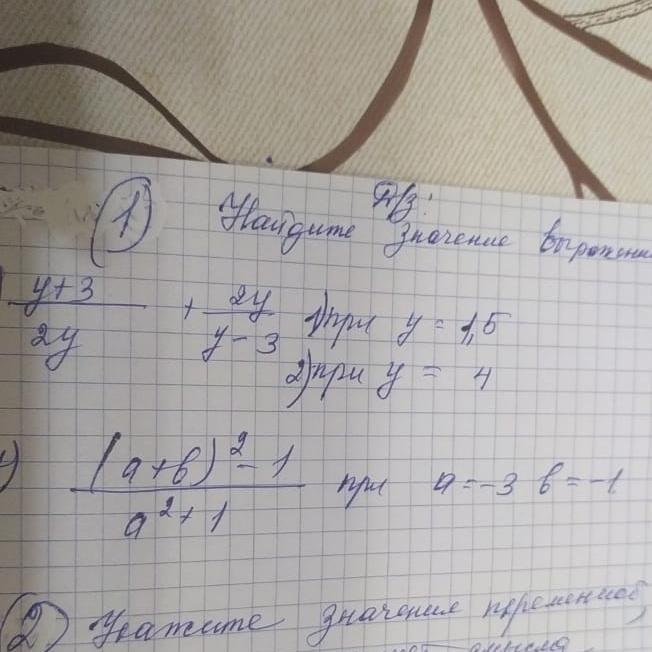 Д/З:
1 Найдите значение выражени
y+3/2y + 2y/y-3 1) при y = 1,5
2) при y = 4
(a+b)²-1/a²+1 при a=-3 b=-1
2 Укажите значения переменной,
смысла